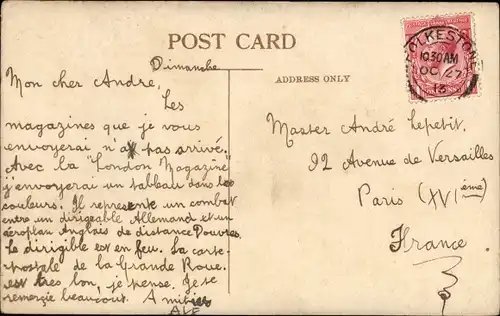 POST CARD
Dimanche
Mon cher Andre,
Les
magazines que je vous
envoyerai n'a pas arrivé.
Avec la "London Magazine"
j'envoyerai un tableau dans les
couleurs. Il represente un combat
entre un dirigeable Allemand et un
aéroplan Anglais de distance Douvres.
Le dirigible est en feu. La carte-
postale de la Grande Roue.
est tres bon, je pense. Je te
remerçie beaucoup. Amities
ALF
ADDRESS ONLY
FOLKESTONE
10 30 AM
OC 27
Master André Lepetit.
92 Avenue de Versailles
Paris (XVIème)
France